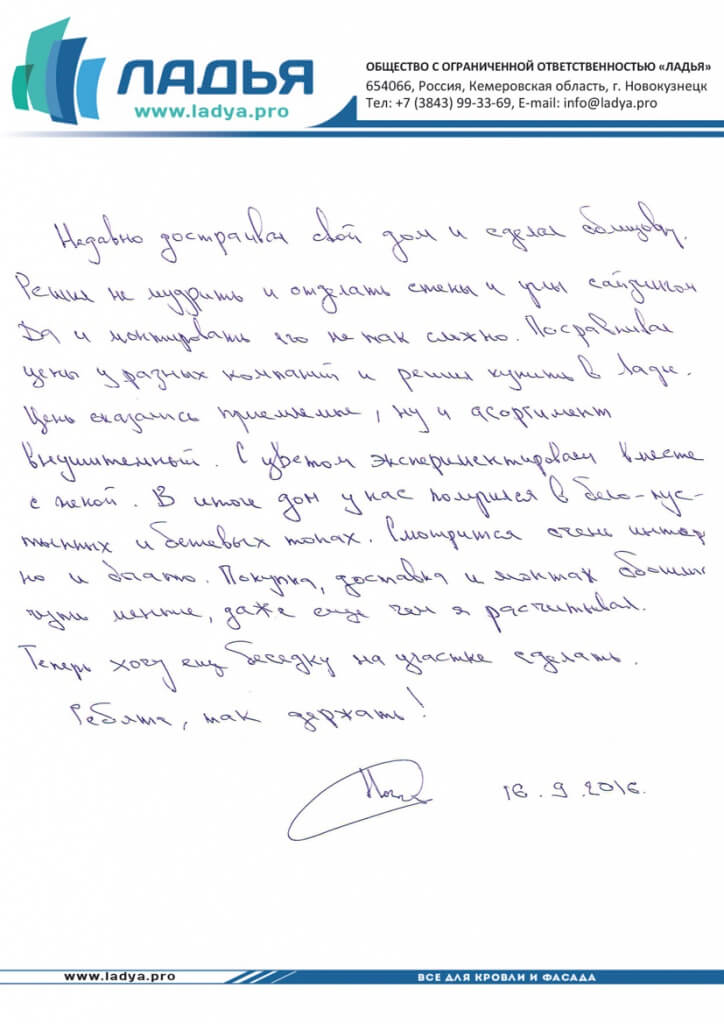 ЛАДЬЯ
www.ladya.pro
ОБЩЕСТВО С ОГРАНИЧЕННОЙ ОТВЕТСТВЕННОСТЬЮ «ЛАДЬЯ»
654066, Россия, Кемеровская область, г. Новокузнецк
Тел: +7 (3843) 99-33-69, E-mail: info@ladya.pro
Недавно достраивал свой дом и сделал облицовку.
Решил не мудрить и отделать стены и углы сайдингом
Да и монтировать его не так сложно. Посравнивал
цены у разных компаний и решил купить в Ладье.
Цены оказались приемлемые, ну и асортимент
внушительный. С цветом экспериментировали вместе
с женой. В итоге дом у нас получился в бело-пус-
тынных и бежевых тонах. Смотрится очень
но и богато. Покупка, доставка и монтаж обошлись
чуть меньше, даже еще чем я расчитывал.
Теперь хочу еще беседку на участке сделать.
Ребята, так держать!
16.9.2016.
www.ladya.pro
ВСЕ ДЛЯ КРОВЛИ И ФАСАДА